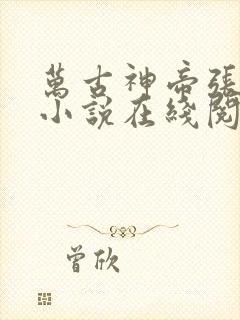 萬古神帝張
小說在綫閱
曾欣